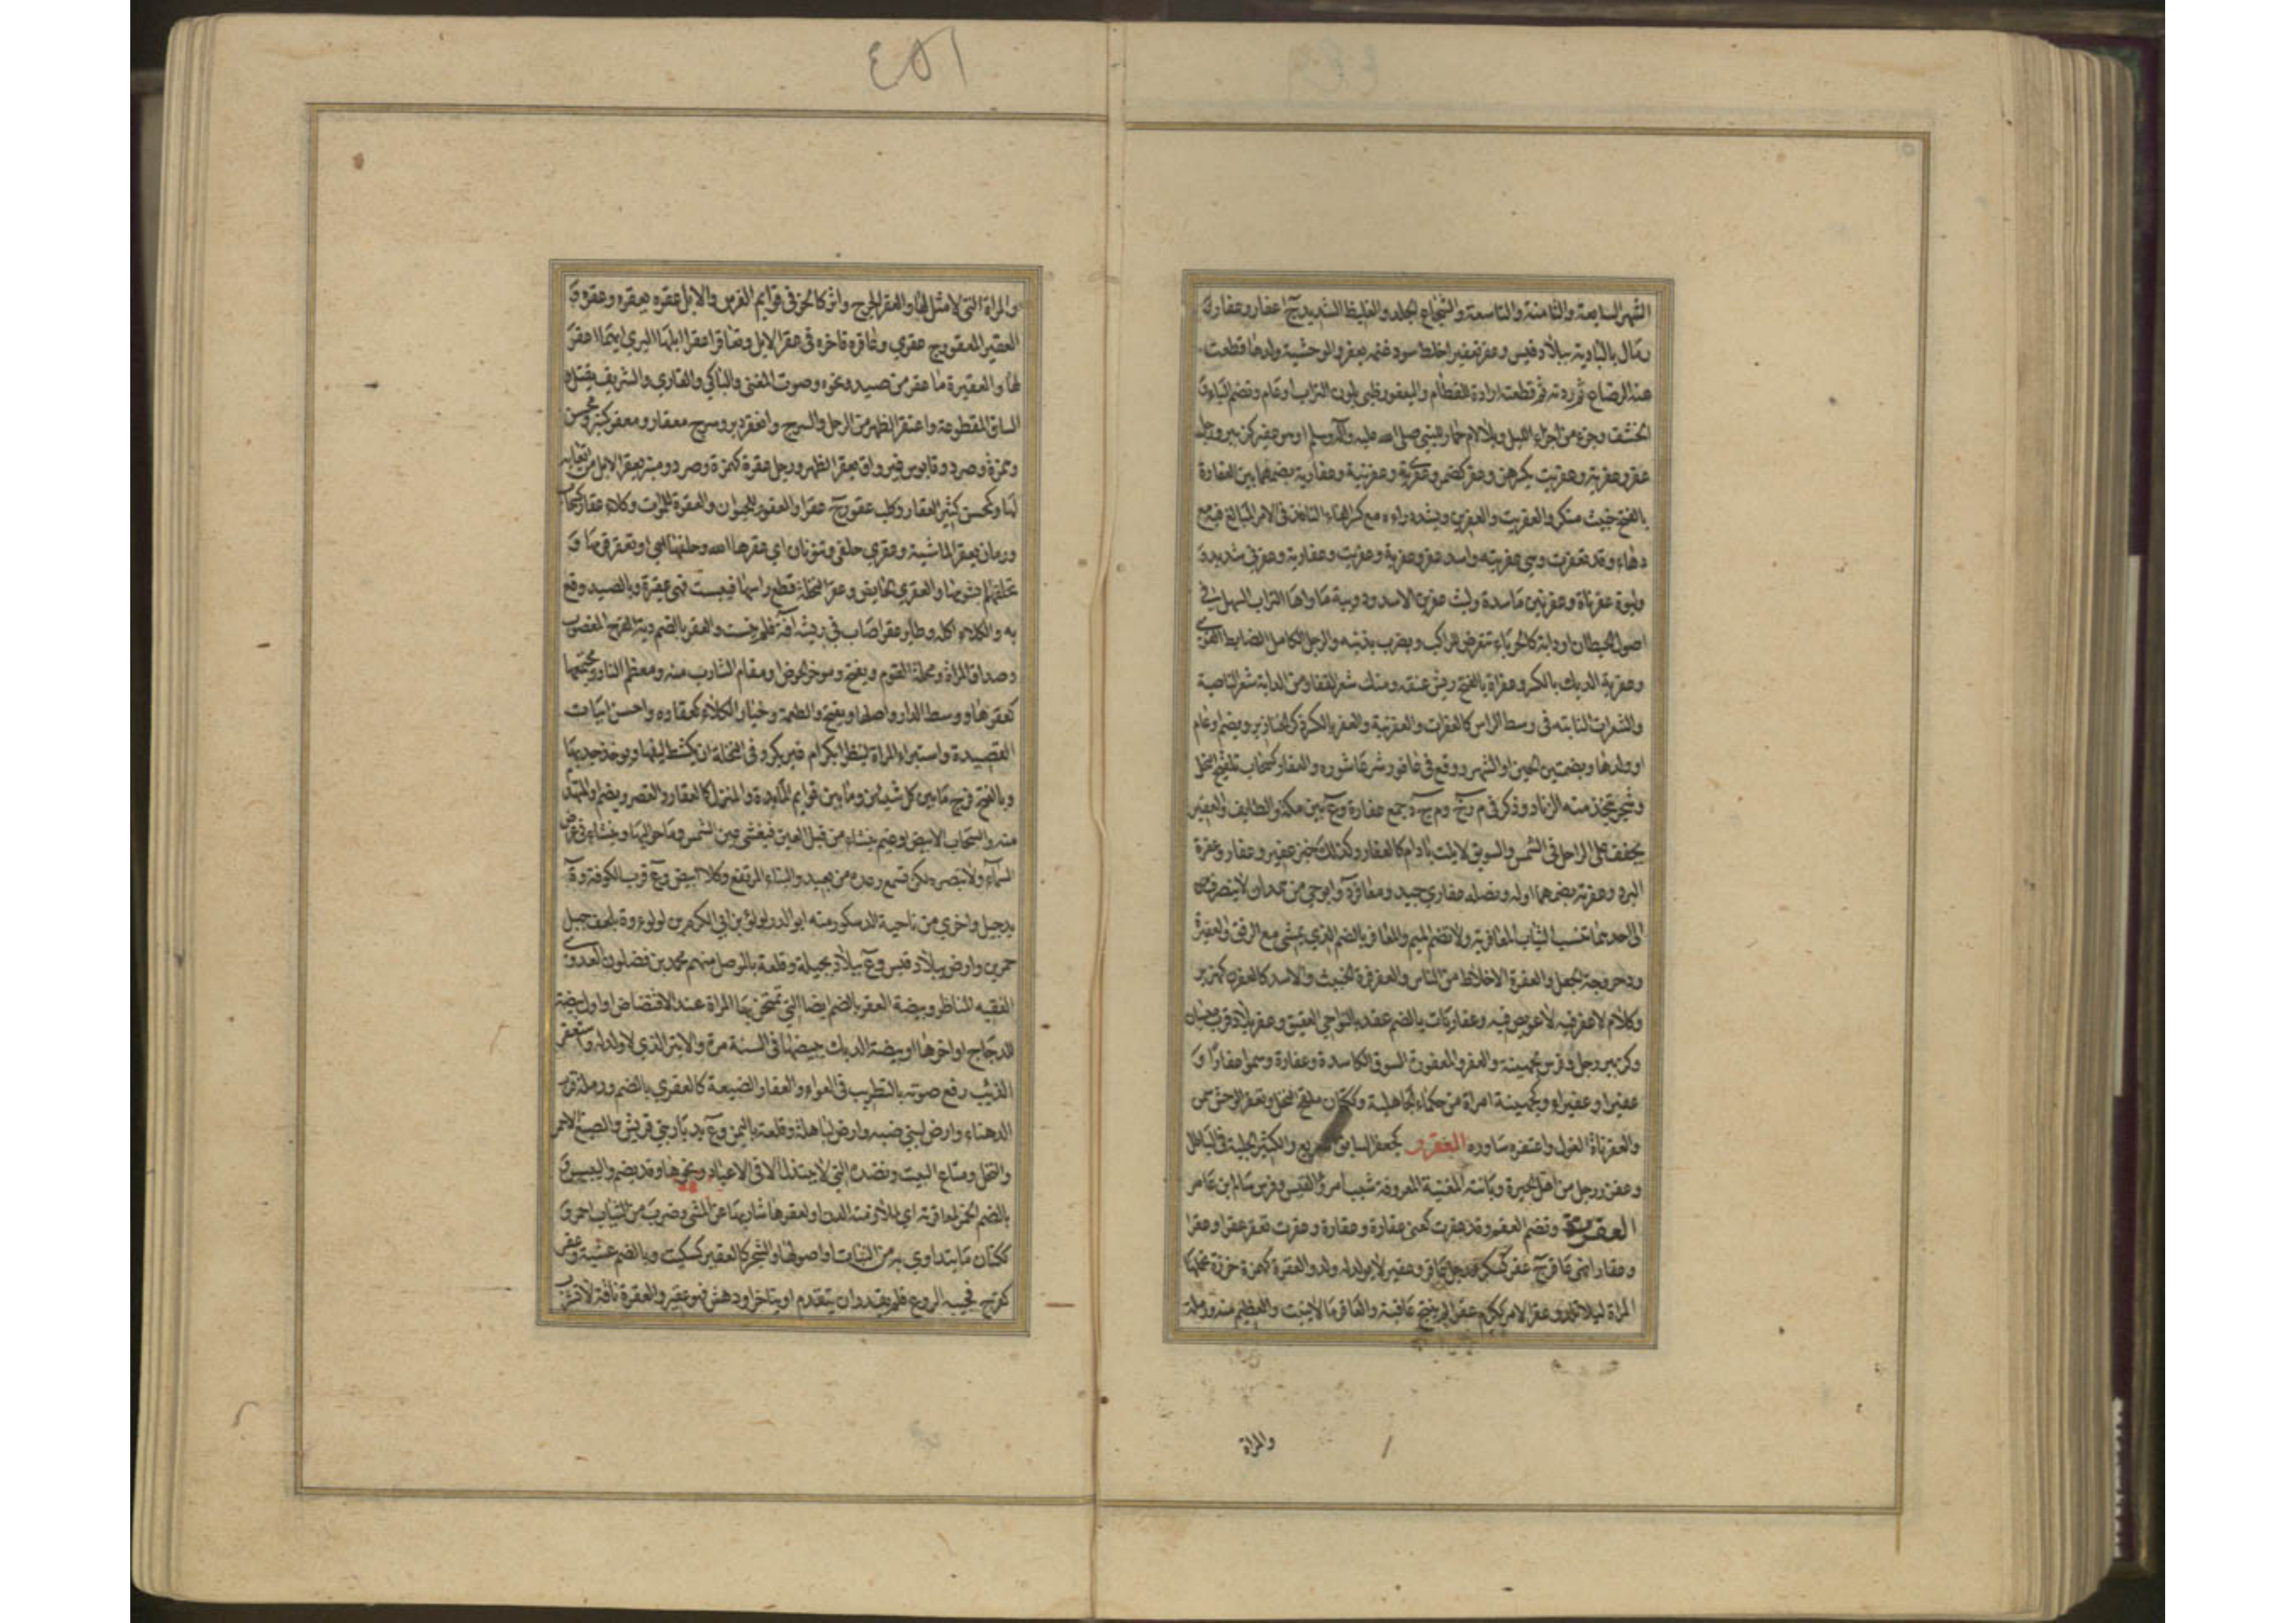 الشهر السابعة والثامنة والتاسعة والشجاع الجلد والغليظ الشديد ج اعفار وعفار وَ
رمال بالبادية ببلاد قيس وعفر تعفيرا خلط سود غنمه بعفر والوحشية ولدها قطعت
عنه الرضاع ثم ردته ثم قطعت ارادة للفطام واليعفور ظبي بلون التراب او عام وتضم الياء وَ
الخشف وجزء من اجزاء الليل وبلا لام حمار للنبي صلى الله عليه وآله وسلم او هو عفير كزبير ورجل
عفر وعفرية وعفريت بكسرهن وعفر وعفرية وعفرنية وعفارية بضمهما بين العفارة
بالفتح خبيث منكر والعفريت والعفرين وتشدد راءه مع كسر الفاء النافذ في الامر المبالغ فيه مع
دهاء وقد تعفرت وهي عفريتة واسد عفر وعفرية وعفريت وعفارية وعفرني شديد وَ
ولبوة عفرناة وعفرين ماسدة وليث عفرين الاسد ودويبة ماواها التراب السهل في
اصول الحيطان او دابة كالحرباء تتعرض للراكب وتضرب بذنبها والرجل الكامل الضابط القوي
وعفرية الديك بالكسر وعفراة بالفتح ريش عنقه ومنك شعر القفا ومن الدابة شعر الناصية
والشعرات النابتة في وسط الراس كالعفرات والعفرنية والعفر بالكسر ذكر الخنازير ويضم او عام
او ولدها وبضمتين الحين او الشهر ووقع في عافور شر عاثوره والعفار كسحاب تلقيح النخل
وشجر يتخذ منه الزناد وذكر في م ر خ و م ج د جمع عفارة وع بين مكة والطايف والعفير لحم
يجفف على الرمل في الشمس والسويق لا يلت بادام كالعفار وكذلك خبز عفير وعفار وعفرة
البرد وعفرته بضمهما اوله ونصل عفاري جيد ومعافر د وابو حي من همدان لا ينصرف
الى احدهما تنسب الثياب المعافرية ولا تضم الميم والمعافر بالضم الذي يمشي مع الرفق والعفيرة
ودحروجة الجعل والعفرة الاخلاط من الناس والعفرفرة الخبث والاسد كالعفرن كهزبر
وكلام لا عفر فيه لا عويص فيه وعفاريات بالضم عقد بنواحي العقيق وعفربلا د قرب بيسان
وكزبير رجل وفرس وجهينة والعفر والمعفورة السوق الكاسدة وعفارة وسموا عفارا وَ
عفيرا وعفيراء وكجهينة امراة من حكماء الجاهلية وككتان ملقح النخل وتعفر الوحش سمن
والعفرناة الغول واعتفره ساوره العفزر كجعفر السابق السريع والكثير الجلبة في الباطل
وعفزر رجل من اهل الحيرة وبابنته المغنية المعروفة شبب امرؤ القيس وفرس سالم بن عامر
العقرة وتضم العقم وقد عقرت كعني عقارة وعقارة وعقرت تعقر عقرا وعقرا
وعقارا فهي عاقر ج عقر كسكر ورجل عاقر وعقير لا يولد له ولد والعقرة كهمزة خرزة تحملها
المراة ليلا تلد وعقر الامر ككرم عقرا لم ينتج عاقبة والعاقر ما لا ينبت والعظيم منه ورملة
والمراة
٤٥١
والمراة التي لا مثل لها والعقر الجرح واثر كالحز في قوايم الفرس والابل عقره يعقره وعقره وَ
العقير المعقور ج عقري وعاقره فاخره في عقر الابل وتعاقرا عقرا ابلهما ليري ايهما اعقر
لها والعقيرة ما عقر من صيد ونحوه وصوت المغني والباكي والقاري والشريف يقتل وَ
الساق المقطوعة واعتقر الظهر من الرحل والسرج وانعقر دبر وسرج معقار ومعقر كمنبر ومحسن
وهمزة وصرد وقابوس غير واق يعقر الظهر ورجل عقرة كهمزة وصرد ومنبر يعقر الابل من اتعابه
لها وكمحسن كثير العقار وكلب عقور ج عقر او العقور للحيوان والعقرة للموات وكلاء عقار كسحاب
ورمان يعقر الماشية وعقري حلقي وتنونان اي عقرها الله وحلقها اي او تعقر قومها وَ
تحلقهم بشومها والعقري الحايض وعقر النخلة قطع راسها فيبست فهي عقيرة وبالصيد وقع
به والكلاء اكله وطاير عقر اصاب في ريشه آفة فلم ينبت والعقر بالضم دية الفرج المغصوب
وصداق المراة ومحلة القوم ويفتح وموخر الحوض او مقام الشارب منه ومعظم النار ومجتمعها
كعقرها ووسط الدار واصلها ويفتح والطعمة وخيار الكلاء كعقاره واحسن ابيات
القصيدة واستبراء المراة لينظر ابكر ام غير بكر وفي النخلة ان يكشط ليفها ويوخذ جذبها
وبالفتح فرج ما بين كل شيئين وما بين قوايم المايدة والمنزل كالعقار والقصر ويضم او المتهدم
منه والسحاب الابيض او غيم ينشاء من قبل العين فيغشي عين الشمس وما حواليها وينشاء في عرض
السماء ولا تبصره لكن تسمع رعده من بعيد والبناء المرتفع وكل ابيض وع قرب الكوفة وة
بدجيل واخري من ناحية الدسكرة منه ابو الدر لولؤ بن ابي الكرم بن لولوء وة بلحف جبل
حمرين وارض ببلاد قيس وع ببلاد بجيلة وقلعة بالموصل منهم محمد بن فضلون العدوي
الفقيه المناظر وبيضة العقر بالضم ايضا التي تمتحن بها المراة عند الافتضاض او اول بيضة
للدجاج او اخرها او بيضة الديك يبيضها في السنة مرة والابتر الذي لا ولد له واستعقر
الذيب رفع صوته بالتطريب في العواء والعقار الضيعة كالعقري بالضم ورملة قرب
الدهناء وارض لبني ضبه وارض لباهلة وقلعة باليمن وع بديار بني قريش والصبغ الاحمر
والنخل ومتاع البيت ونضده الذي لا يبتذل الا في الاعياد ونحوها وقد يضم واليبس وَ
بالضم الخمر لمعاقرته اي لملازمته الدن او لعقرها شاربها عن المشي وضرب من الثياب احمر وَ
ككتان ما يتداوي به من النبات او اصولها والشجر كالعقير كسكيت وبالضم عشبة وعقر
كفرح فجيه الروع فلم يقدر ان يتقدم او يتاخر او دهش فهو عقير والعقرة ناقة لا تشرب